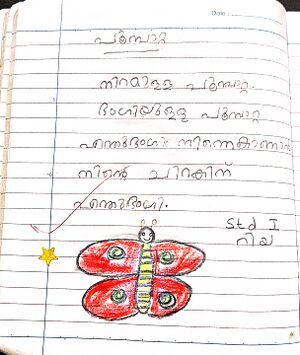 Date :
പൂമ്പാറ്റ
നിറമുളള പൂമ്പാറ്റ.
ഭംഗിയുളള പൂമ്പാറ്റ
എന്തുഭംഗി നിന്നെകാണാൻ
നിൻ്റെ ചിറകിന്
എന്തുഭംഗി.
Std I
റിയ